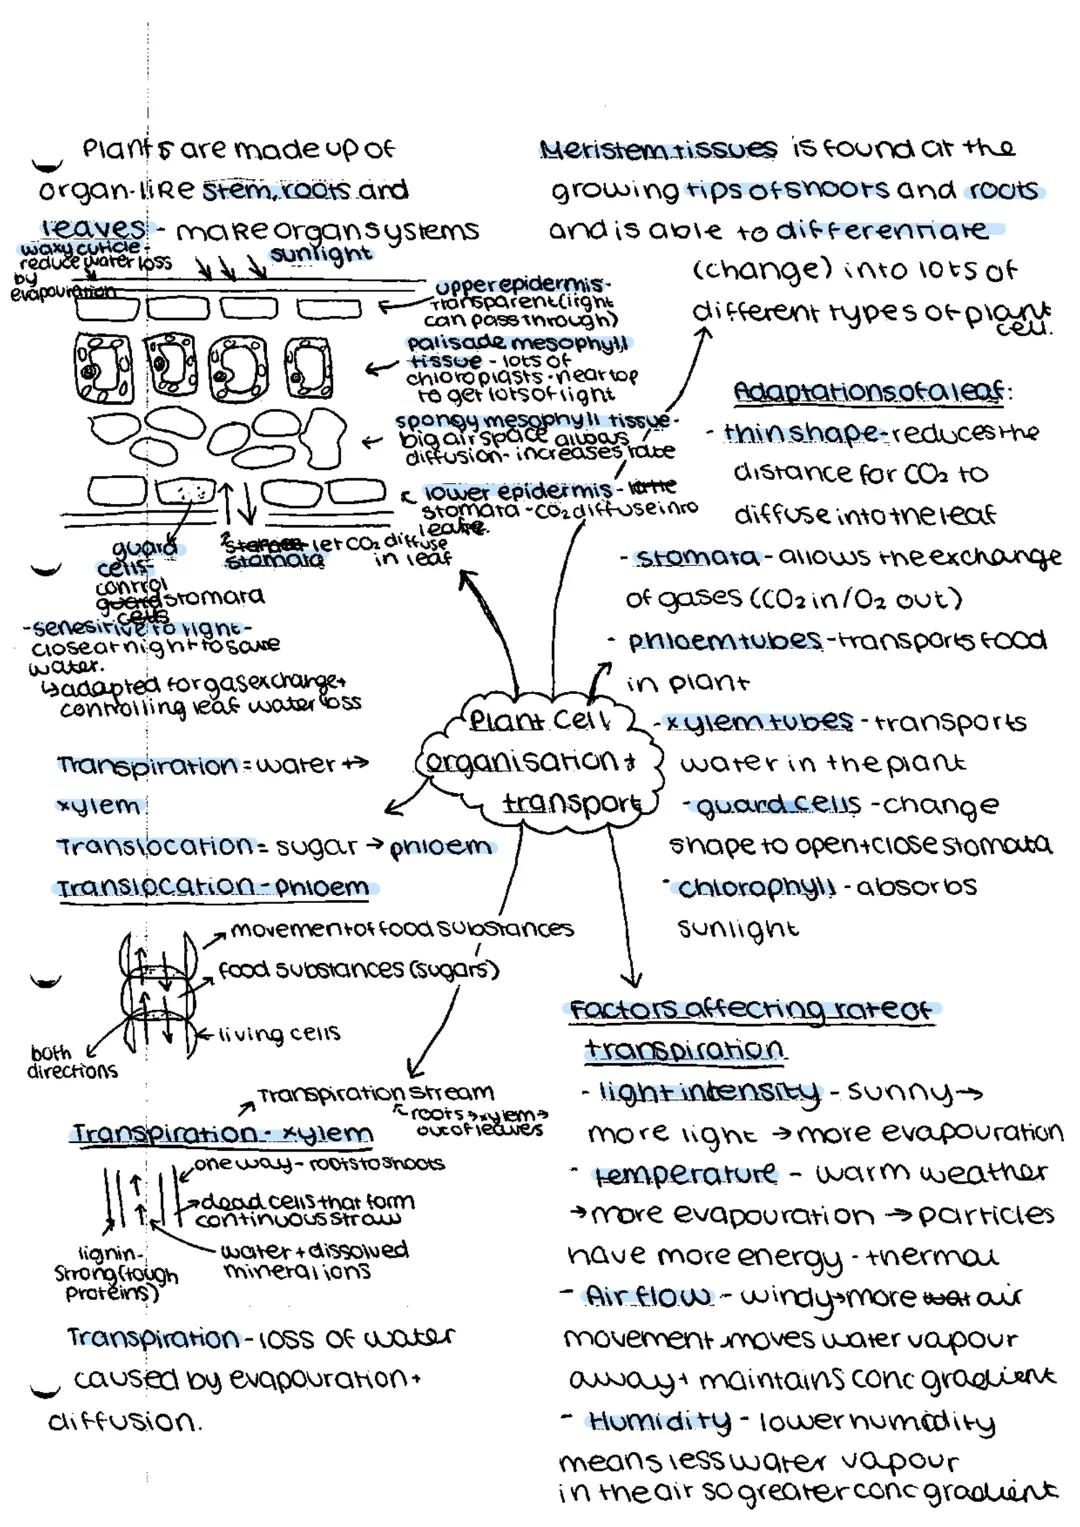 Plants are made up of
organ-like stem, roots and
leaves - make organ systems
waxy cuticle -
reduce water loss
by
evapouration
sunlight
upper epidermis -
transparent (light
can pass through)
palisade mesophyll
tissue - lots of
chloroplasts - near top
to get lots of light
spongy mesophyll tissue -
big air space allows
diffusion - increases rate
lower epidermis -
stomata - CO2 diffuse into
leafe.
guard
cells -
control
guard stomata
cells
stomata let CO2 diffuse
stomata in leaf
- senesitive to light -
close at night to save
water.
↳ adapted for gas exchange +
controlling leaf water loss
Plant Cell
organisation +
transport
Transpiration = water →
xylem
Translocation = sugar → phloem
Translocation - Phloem
movement of food substances
food substances (sugars)
living cells
both
directions
Transpiration stream
roots → xylem →
out of leaves
Transpiration - xylem
one way - roots to shoots
dead cells that form
continuous straw
water + dissolved
mineral ions
lignin -
Strong (tough
proteins)
Transpiration - loss of water
caused by evapouration +
diffusion.
Meristem tissues is found at the
growing tips of shoots and roots
and is able to differentiate
(change) into lots of
different types of plant
cell.
Adaptations of a leaf:
- thin shape - reduces the
distance for CO2 to
diffuse into the leaf
- stomata - allows the exchange
of gases (CO2 in/O2 out)
- phloem tubes - transports food
in plant
- xylem tubes - transports
water in the plant
- guard cells - change
shape to open + close stomata
- chlorophyll - absorbs
sunlight
Factors affecting rate of
transpiration
- light intensity - sunny →
more light → more evapouration
- temperature - warm weather
→ more evapouration → particles
have more energy - thermal
- Air flow - windy → more air
movement, moves water vapour
away + maintains conc gradient
- Humidity - lower humidity
means less water vapour
in the air so greater conc gradient